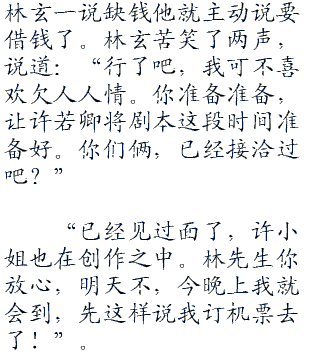 林玄一说缺钱他就主动说要
借钱了。林玄苦笑了两声，
说道：“行了吧，我可不喜
欢欠人人情。你准备准备，
让许若卿将剧本这段时间准
备好。你们俩，已经接洽过
吧？”
“已经见过面了，许小
姐也在创作之中。林先生你
放心，明天不，今晚上我就
会到，先这样说我订机票去
了！”。